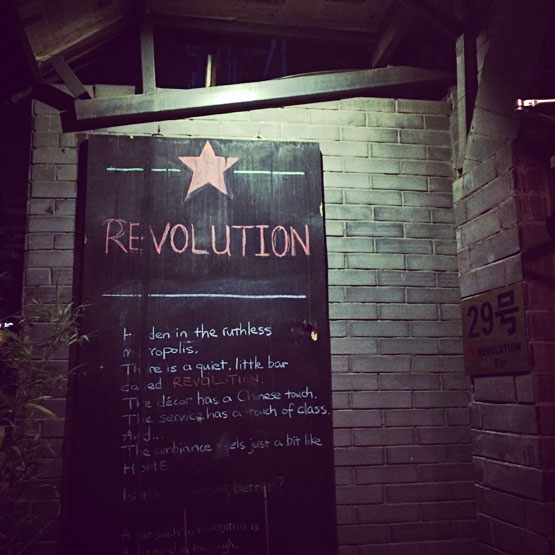 REVOLUTION
in the ruthless
There is a quiet, little bar
called REVOLUTION.
The décor has a Chinese touch.
The service has a touch of class.
And...
The ambiance feels just a bit like
HOME
better?
REVOLUTION is
29号
REVOLUTION
Bar